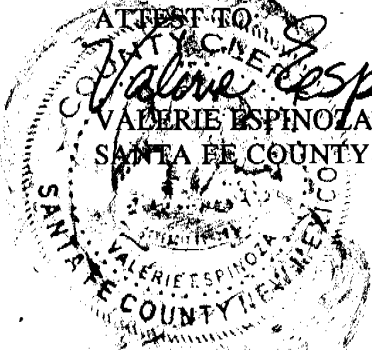 ATTEST TO:
Valerie Esp
VALERIE ESPINOZA
SANTA FE COUNTY
COUNTY CLERK
VALERIE ESPINOZA
SANTA FE COUNTY NEW MEXICO